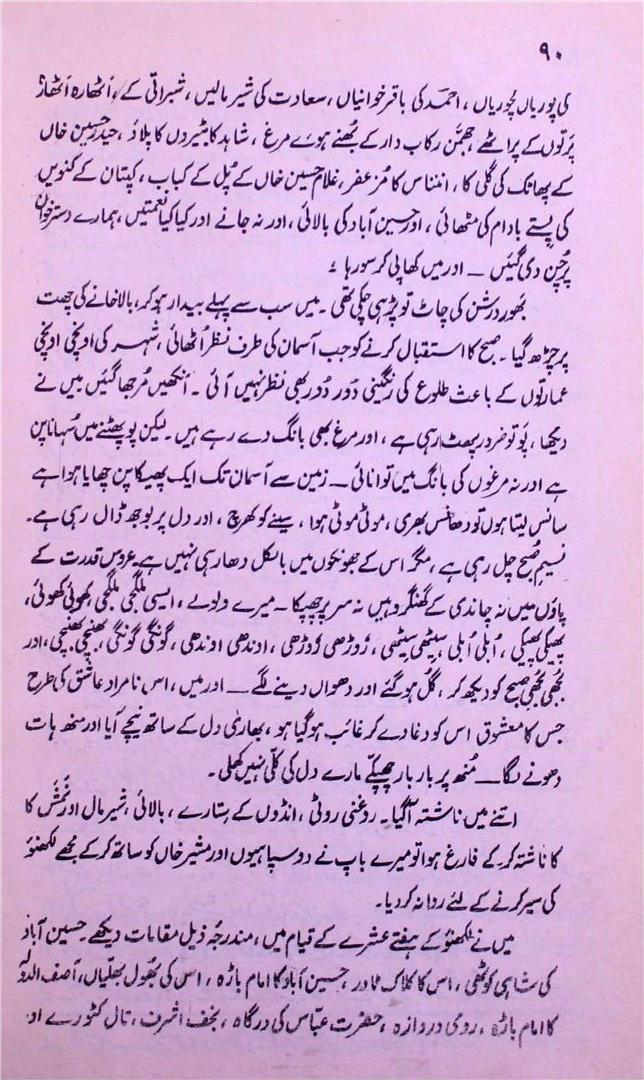 ۹۰
کی پوریاں کچوریاں ، احمد کی باقر خوانیاں ، سعادت کی شیر مالیں ، شبراتی کے ، اٹھارہ اٹھارہ
پرتوں کے پراٹھے ، جھمن رکاب دار کے بھنے ہوئے مرغ ، شاہد کا بٹیروں کا پلاؤ ، حیدر حسین خاں
کے پھاٹک کی گلی کا ، انناس کا مزعفر ، غلام حسین خاں کے پل کے کباب ، کپتان کے کنویں
کی پستے بادام کی مٹھائی ، اور حسین آباد کی بالائی ، اور نہ جانے اور کیا کیا نعمتیں ، ہمارے دسترخوان
پر چن دی گئیں ــ اور میں کھا پی کر سو رہا ۔
بھور درشن کی چاٹ تو پڑ ہی چکی تھی ۔ میں سب سے پہلے بیدار ہو کر ، بالا خانے کی چھت
پر چڑھ گیا ۔ صبح کا استقبال کرنے کو جب آسمان کی طرف نظر اٹھائی ، شہر کی اونچی اونچی
عمارتوں کے باعث طلوع کی رنگینی دور دور بھی نظر نہیں آئی ۔ آنکھیں مرجھا گئیں میں نے
دیکھا ، پو تو ضرور پھٹ رہی ہے ، اور مرغ بھی بانگ دے رہے ہیں ۔ لیکن پو پھٹنے میں سہانا پن
ہے اور نہ مرغوں کی بانگ میں توانائی ــ زمین سے آسمان تک ایک پھیکا پن چھایا ہوا ہے
سانس لیتا ہوں تو دھانس بھری ، موٹی موٹی ہوا ، سینے کو کھرچ ، اور دل پر بوجھ ڈال رہی ہے ۔
نسیم صبح چل رہی ہے ، مگر اس کے جھونکوں میں بالکل دھار ہی نہیں ہے عروس قدرت کے
پاؤں میں نہ چاندی کے گھنگرو ہیں نہ سر پر چھپکا ــ میرے ولولے ، ایسی ملگجی ملگجی ، کھوئی کھوئی ،
پھیکی پھیکی ، ابلی ابلی ، سیٹھی سیٹھی ، روڑھی روڑھی ، اوندھی اوندھی ، گونگی گونگی ، بھنچی بھنچی ، اور
بجھی بجھی صبح کو دیکھ کر ، گل ہو گئے اور دھواں دینے لگے ــ اور میں ، اس نامراد عاشق کی طرح
جس کا معشوق اس کو دغا دے کر غائب ہو گیا ہو ، بھاری دل کے ساتھ نیچے آیا اور منھ ہات
دھونے لگا ــ منھ پر بار بار چھپکے مارے دل کی کلی نہیں کھلی ۔
اتنے میں ناشتہ آ گیا ۔ روغنی روٹی ، انڈوں کے ، بالائی ، شیر مال اور نمش کا
کا ناشتہ کر کے فارغ ہوا تو میرے باپ نے دو سپاہیوں اور مشیر خاں کو ساتھ کر کے مجھے لکھنؤ
کی سیر کرنے کے لئے روانہ کر دیا ۔
میں نے لکھنؤ کے ہفتے عشرے کے قیام میں ، مندرجہ ذیل مقامات دیکھے ۔ حسین آباد
کی شاہی کوٹھی ، اس کا کلاک ٹاور ، حسین آباد کا امام باڑہ ، اس کی بھول بھلیاں ، آصف الدولہ
کا امام باڑہ ، رومی دروازہ ، حضرت عباس کی درگاہ ، نجف اشرف ، تال کٹورے اور